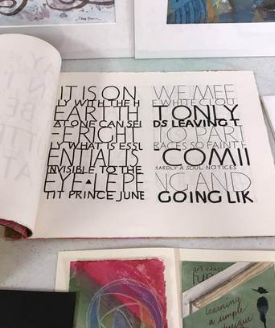 IT IS ON
LY WITH THE H
EART TH
AT ONE CAN SEE
RIGHT
LY WHAT IS ESS
ENTIAL IS
INVISIBLE TO THE
EYE
TIT PRINCE JUNE
WE MEE
E WHITE CLOU
T ONLY
DS LEAVING T
TO PART
RACES SO FAINT E
COMI
HARDLY A SOUL NOTICES
NG AND
GOING LIK
learning
a simple